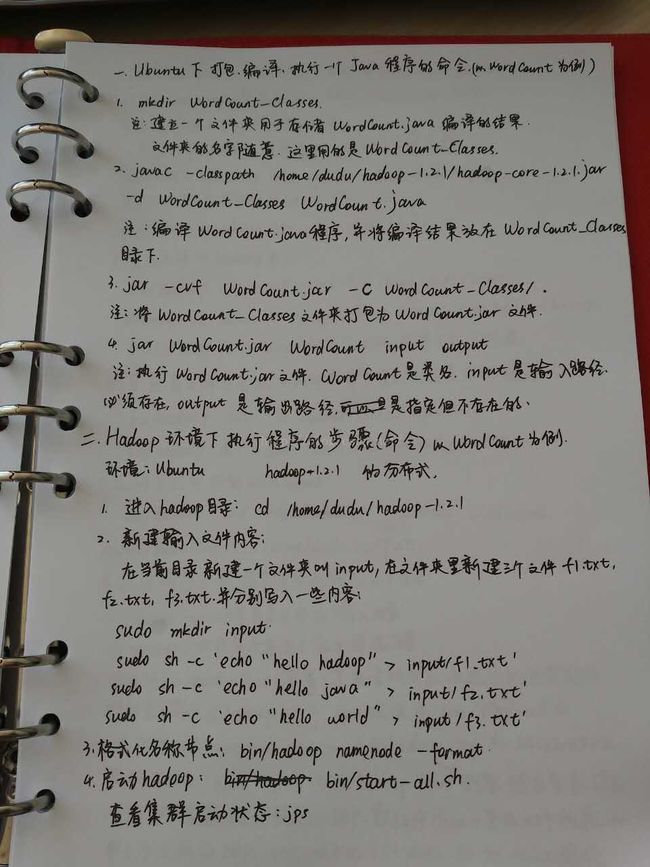 一. Ubuntu下打包.编译.执行一个Java程序的命令.(以WordCount为例)
1. mkdir WordCount_Classes.
注:建立一个文件夹用于存储着WordCount.java编译的结果.
文件夹的名字随意.这里用的是WordCount_Classes.
2. javac -classpath /home/dudu/hadoop-1.2.1/hadoop-core-1.2.1.jar
-d WordCount_Classes WordCount.java
注:编译WordCount.java程序,并将编译结果放在WordCount_Classes
目录下.
3. jar -cvf WordCount.jar -C WordCount_Classes/ .
注:将WordCount_Classes文件夹打包为WordCount.jar文件.
4. jar WordCount.jar WordCount input output
注:执行WordCount.jar文件. WordCount是类名. input是输入路径.
必须存在, output是输出路径,是指定但不存在的.
二. Hadoop环境下执行程序的步骤(命令)以WordCount为例.
环境:Ubuntu hadoop-1.2.1 伪分布式.
1. 进入hadoop目录: cd /home/dudu/hadoop-1.2.1
2. 新建输入文件内容:
在当前目录新建一个文件夹叫input,在文件夹里新建三个文件f1.txt,
f2.txt, f3.txt.并分别写入一些内容:
sudo mkdir input
sudo sh -c 'echo "hello hadoop" > input/f1.txt'
sudo sh -c 'echo "hello java" > input/f2.txt'
sudo sh -c 'echo "hello world" > input/f3.txt'
3.格式化名称节点: bin/hadoop namenode -format
4.启动hadoop: bin/hadoop bin/start-all.sh.
查看集群启动状态:jps